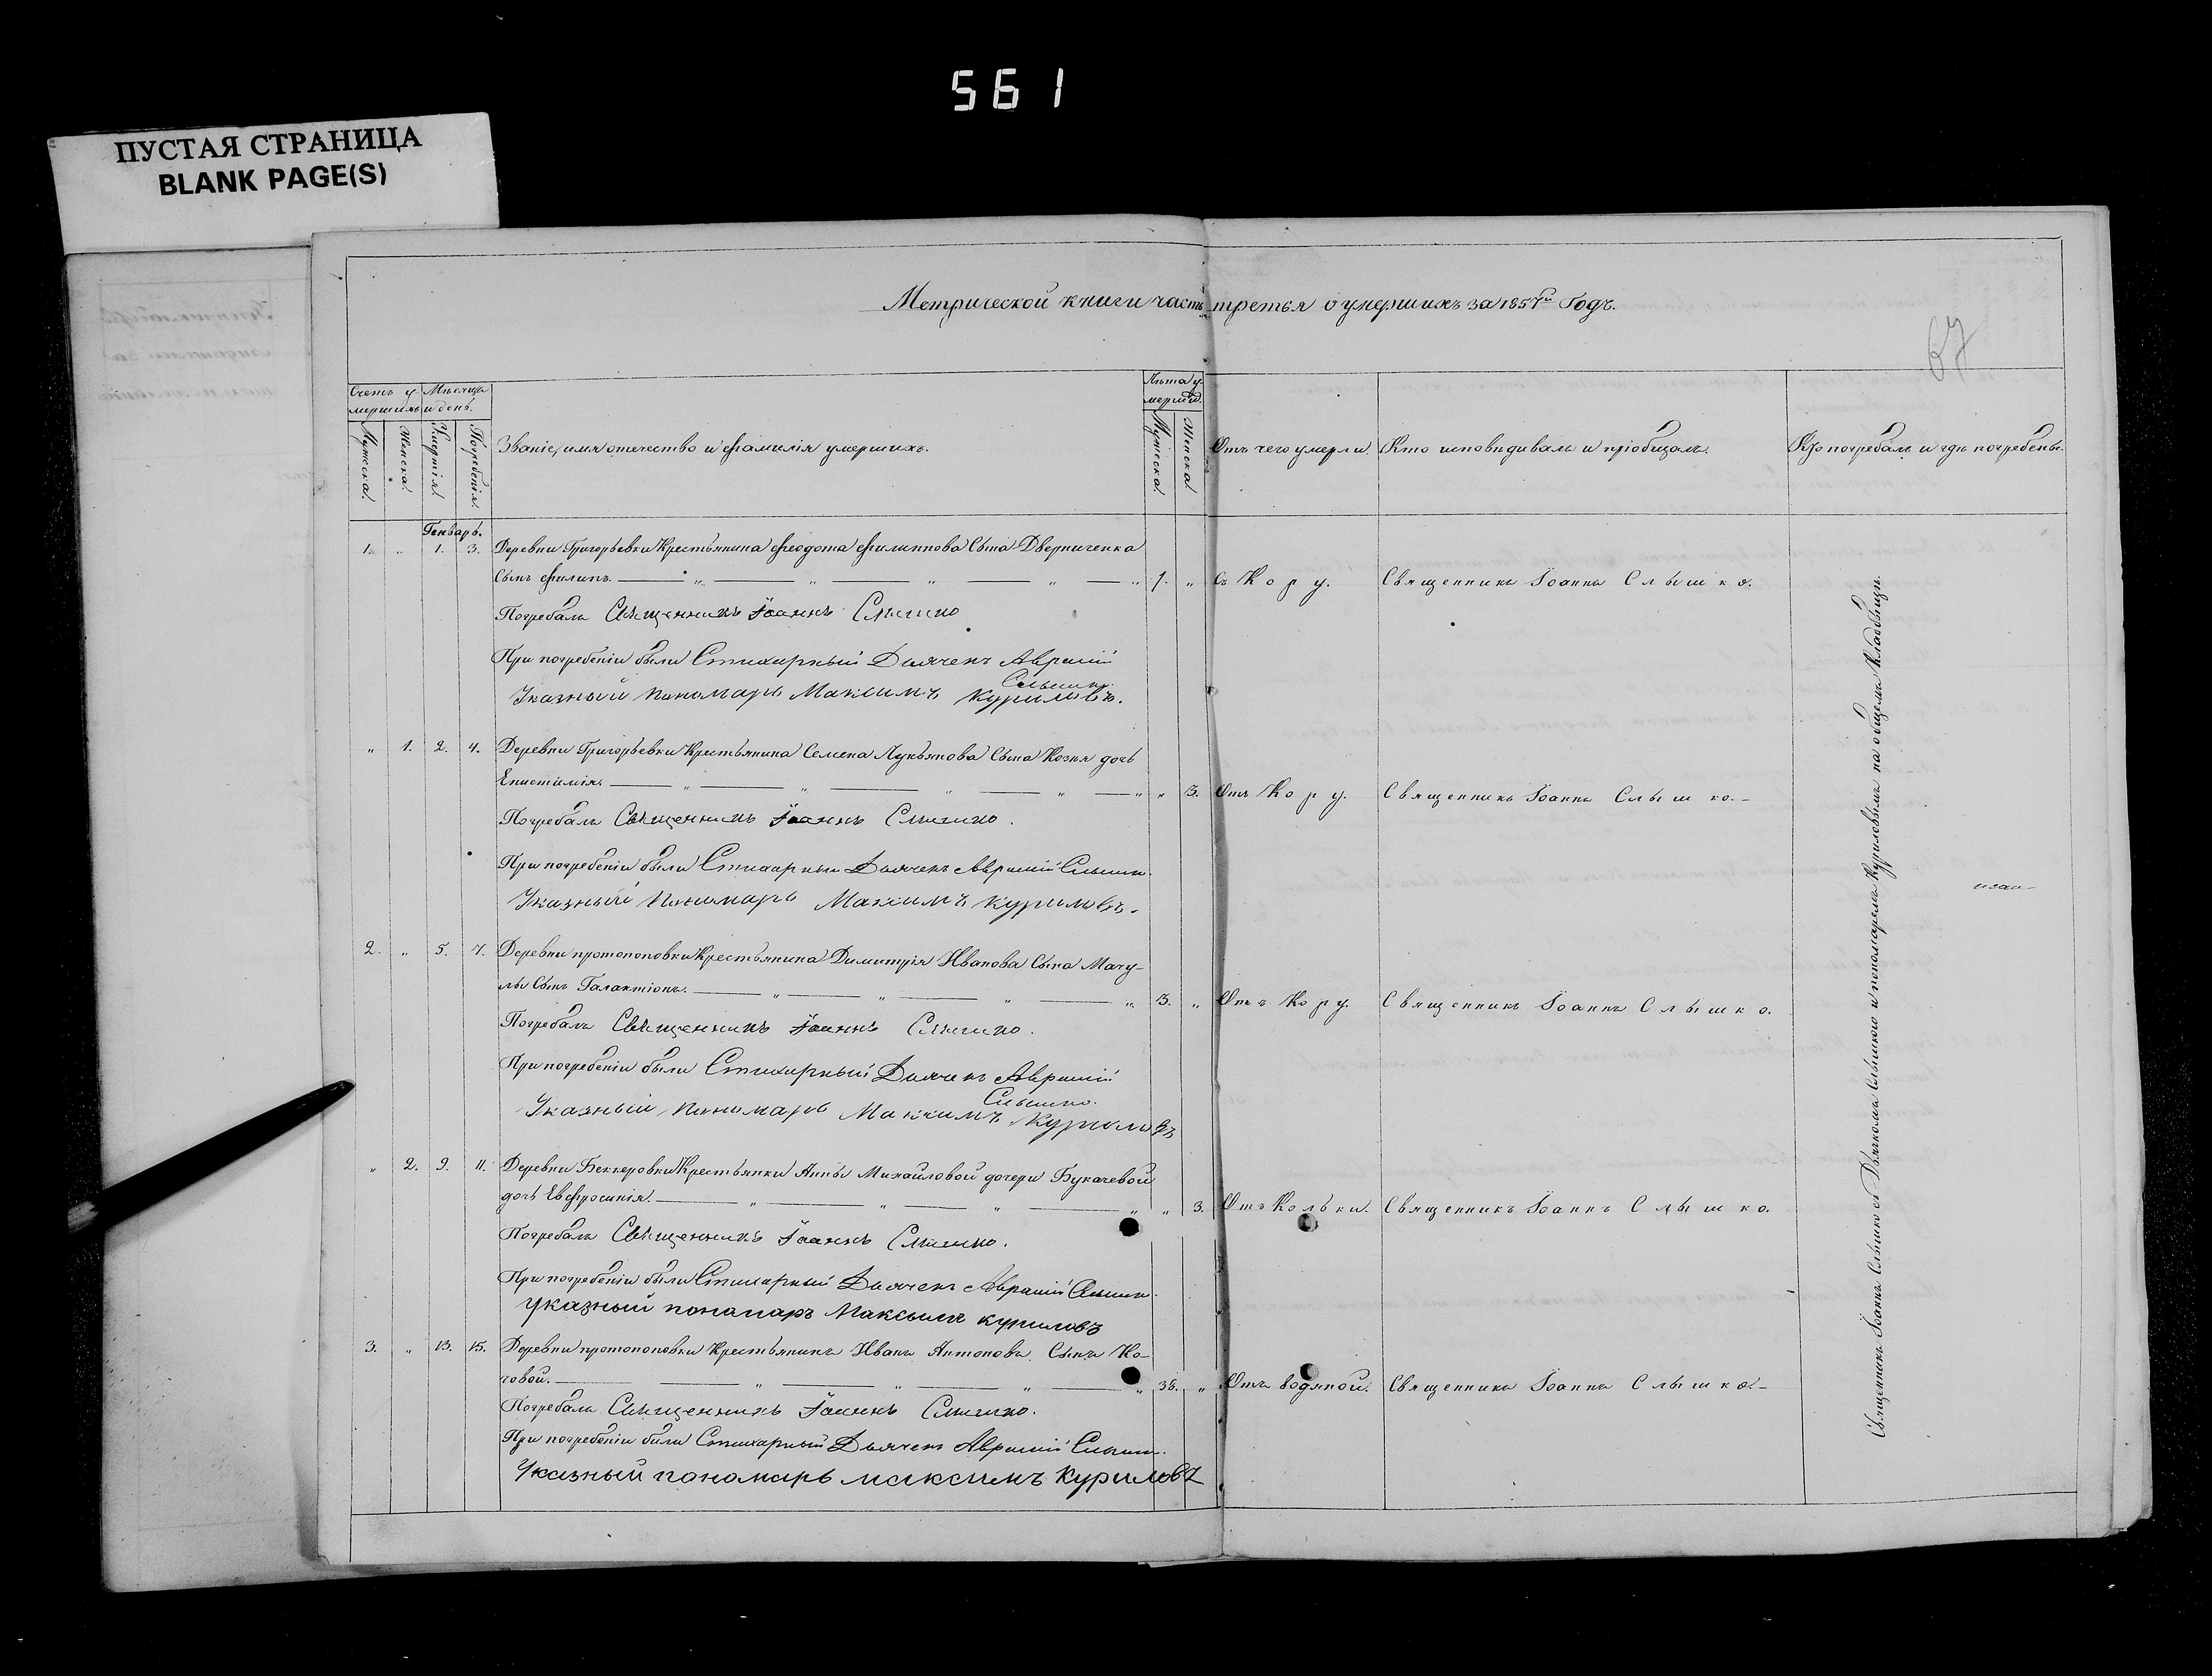 561
ПУСТАЯ СТРАНИЦА
BLANK PAGE(S)
Метрической книги часть третья о умершихъ за 1857й Годъ.
67
Счетъ у-
мершихъ
Мѣсяцъ
и день.
Лѣта у-
мершихъ.
Мужеска.
Женска.
Умертія.
Погребенія.
Званіе, имя отечество и фамилія умершихъ.
Мужеска.
Женска.
Отъ чего умерли.
Кто исповѣдивалъ и пріобщалъ.
Кто погребалъ и гдѣ погребены.
Генварь.
1. „ 1. 3. Деревни Григорьевки Крестьянина Феодота Филиппова Сына Дверниченка
Сынъ Филипъ. „ „ „ „ „ 1. „ Съ Кору. Священникъ Іоаннъ Слышко.
Погребалъ Священникъ Іоаннъ Слышко
При погребеніи были Стихарный Дьячекъ Аврамій
Слышко.
Указный пономарь Максимъ Куриловъ.
„ 1. 2. 4. Деревни Григорьевки Крестьянина Семена Лукьянова Сына Козыя дочь
Епистимія. „ „ „ „ „ „ 3. Отъ Кору. Священникъ Іоаннъ Слышко.-
Погребалъ Священникъ Іоаннъ Слышко.
При погребеніи были Стихарный Дьячекъ Аврамій Слышко.
Указный Пономарь Максимъ Куриловъ.
2. „ 5. 7. Деревни протопоповки Крестьянина Димитрія Иванова Сына Мачу-
лы Сынъ Галактіонъ. „ „ „ „ 3. „ Отъ Кору. Священникъ Іоаннъ Слышко.
Погребалъ Священникъ Іоаннъ Слышко.
При погребеніи были Стихарный Дьячекъ Аврамій
Слышко.
Указный пономарь Максимъ Куриловъ
„ 2. 9. 11. Деревни Беккеровки Крестьянки Анны Михайловой дочери Букачевой
дочь Евфросинія. „ „ „ „ „ 3. Отъ Кольки. Священникъ Іоаннъ Слышко.
Погребалъ Священникъ Іоаннъ Слышко.
При погребеніи были Стихарный Дьячекъ Аврамій Слышко.
указный понамаръ Максымъ куриловъ
3. „ 13. 15. Деревни протопоповки Крестьянинъ Иванъ Антоновъ Сынъ Ко-
човой. „ „ „ „ „ Отъ водяной. Священникъ Іоаннъ Слышко.-
Погребалъ Священникъ Іоаннъ Слышко.
При погребеніи были Стихарный Дьячекъ Аврамій Слышко.
Указный пономарь максимъ Куриловъ
Священникъ Іоаннъ Слышко съ Дьячкомъ Слышкою и пономаремъ Куриловымъ на общемъ Кладбищѣ.